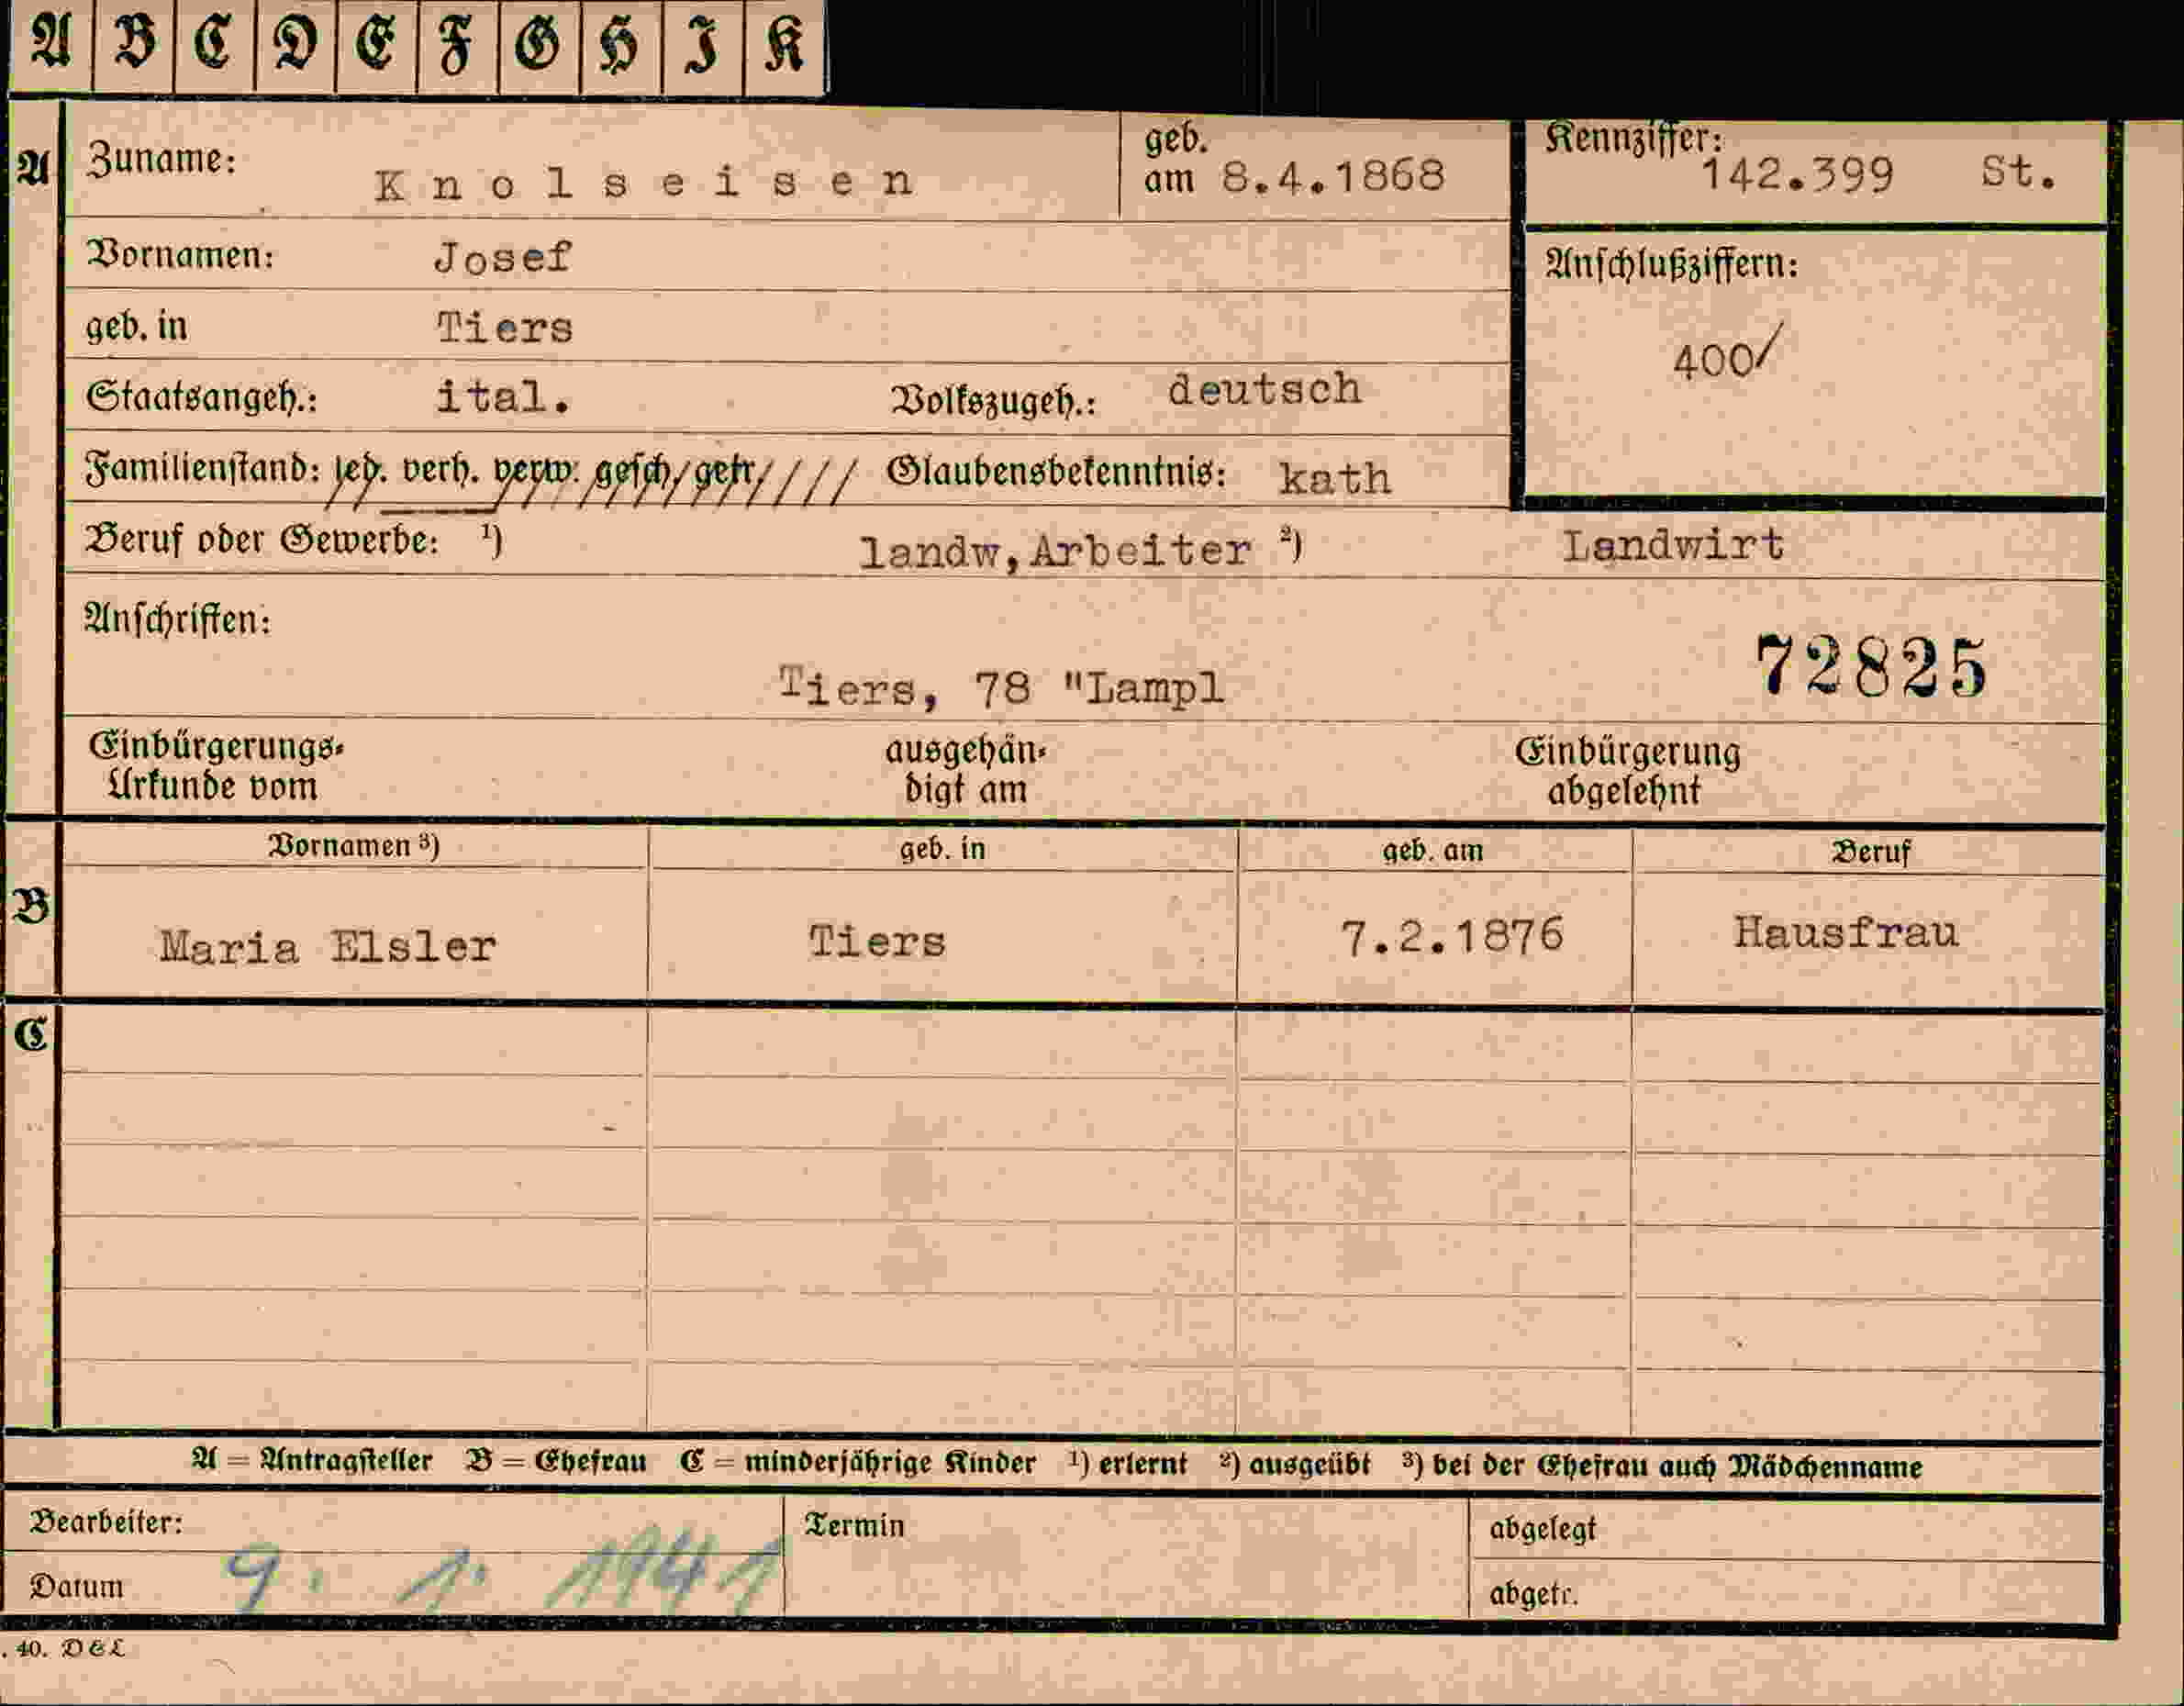 A B C D E F G H I K
A Zuname: Knolseisen geb. am 8.4.1868 Kennziffer: 142.399 St.
Vornamen: Josef Anschlußziffern:
geb. in Tiers 400/
Staatsangeh.: ital. Volkszugeh.: deutsch
Familienstand: led. verh. verw. gesch/getr///// Glaubensbekenntnis: kath
Beruf oder Gewerbe: ¹) landw,Arbeiter ²) Landwirt
Anschriften:
Tiers, 78 "Lampl 72825
Einbürgerungs- ausgehän- Einbürgerung
Urkunde vom digt am abgelehnt
Vornamen ³) geb. in geb. am Beruf
B Maria Elsler Tiers 7.2.1876 Hausfrau
C
A = Antragsteller B = Ehefrau C = minderjährige Kinder ¹) erlernt ²) ausgeübt ³) bei der Ehefrau auch Mädchenname
Bearbeiter: Termin abgelegt
Datum 9. 1. 1941 abgetr.
. 40. D&L